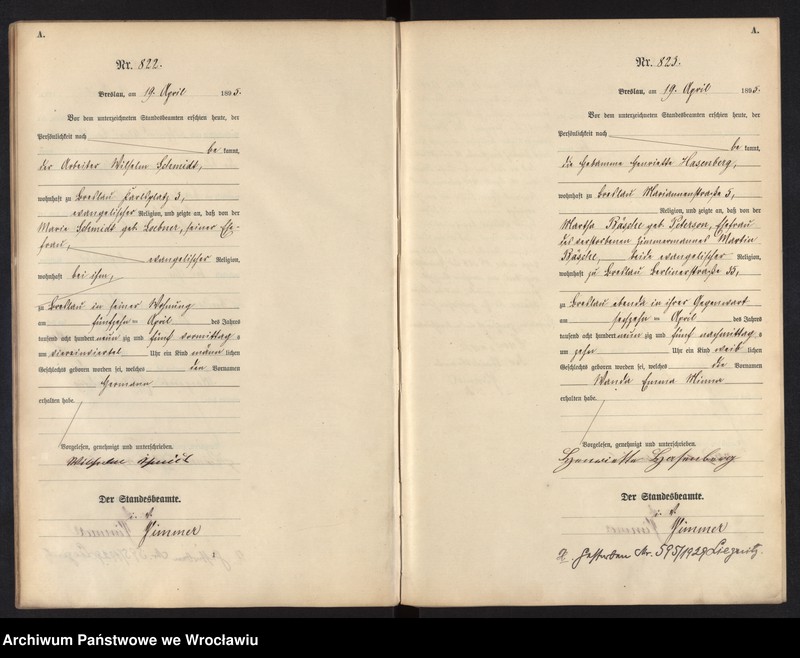 A.
Nr. 822.
Breslau, am 19. April 1895.
Vor dem unterzeichneten Standesbeamten erschien heute, der
Persönlichkeit nach
be kannt,
der Arbeiter Wilhelm Schmidt,
wohnhaft zu Breslau Karlsplatz 3,
evangelischer Religion, und zeigte an, daß von der
Marie Schmidt geb. Loebner, seiner Ehe-
frau,
evangelischer Religion,
wohnhaft bei ihm,
zu Breslau in seiner Wohnung
am fünfzehn = April des Jahres
tausend acht hundert neun zig und fünf vormittag s
um viereinviertel Uhr ein Kind männ lichen
Geschlechts geboren worden sei, welches den Vornamen
Hermann
erhalten habe.
Vorgelesen, genehmigt und unterschrieben.
Wilhelm Schmidt
Der Standesbeamte.
i. V.
Zimmer
A.
Nr. 823.
Breslau, am 19. April 1895.
Vor dem unterzeichneten Standesbeamten erschien heute, der
Persönlichkeit nach
be kannt,
die Hebamme Henriette Hasenberg,
wohnhaft zu Breslau Mariannenstraße 5,
Religion, und zeigte an, daß von der
Martha Käsche geb. Peterson, Ehefrau
des verstorbenen Zimmermannes Martin
Käsche, beide evangelischer Religion,
wohnhaft zu Breslau Berlinerstraße 35,
zu Breslau ebenda in ihrer Gegenwart
am sechzehn = April des Jahres
tausend acht hundert neun zig und fünf nachmittag s
um zehn Uhr ein Kind weib lichen
Geschlechts geboren worden sei, welches die Vornamen
Wanda Emma Minna
erhalten habe.
Vorgelesen, genehmigt und unterschrieben.
Henriette Hasenberg
Der Standesbeamte.
i. V.
Zimmer
Gestorben Nr. 595/1929 Liegnitz.
Archiwum Państwowe we Wrocławiu